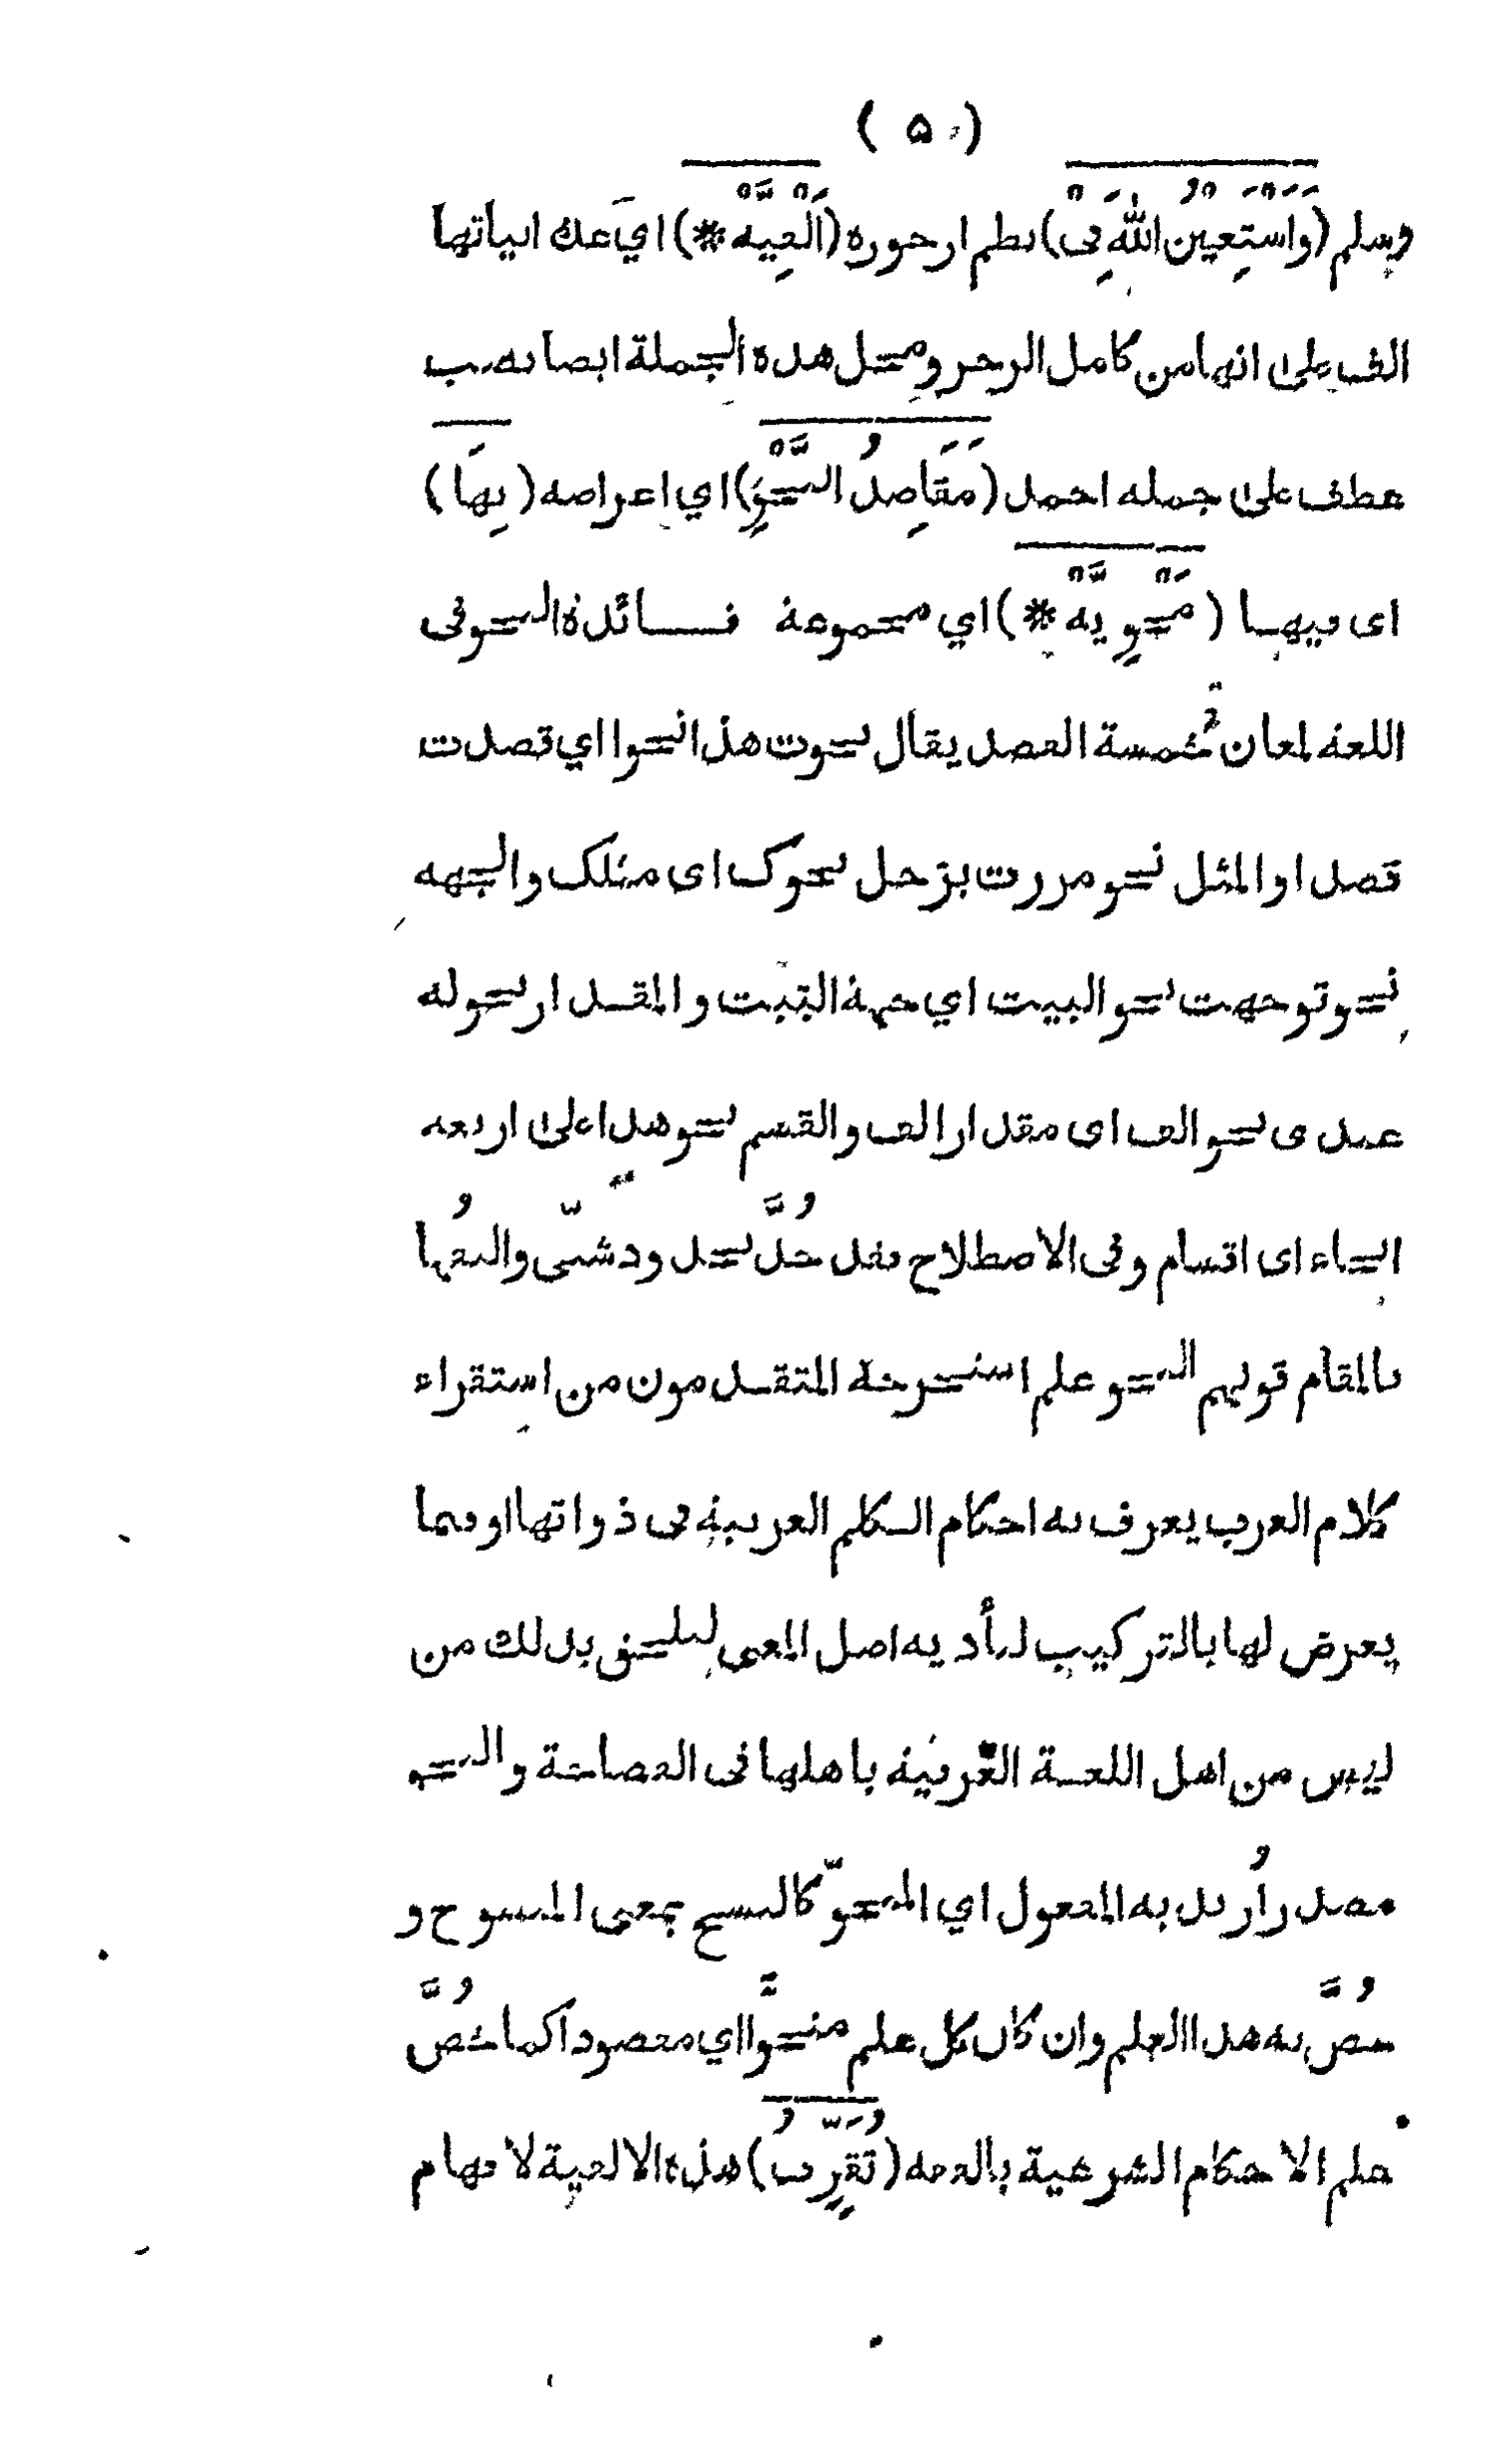 ( ٥ )
وسلم (وَأَسْتَعِيْنُ اللهَ فِيْ) نظم ارجوزة (أَلْفِيَّهْ *) اي عدة ابياتها
الف على انها من كامل الرجز ومحل هذه الجملة ايضا نصب
عطف على جملة احمد (مَقَاصِدُ النَّحْوِ) اي اغراضه (بِهَا)
اى فيهـا (مَحْوِيَّهْ *) اي مجموعة فــائدة النحو فى
اللغة لمعان خمسة القصد يقال نحوت هذا نحوا اي قصدت
قصدا والمثل نحو مررت برَجل نحوك اى مثلك والجهة
نحو توجهت نحو البيت اي جهة البيت والمقـدار نحو له
عندى نحو الف اى مقدار الف والقسم نحو هذا على اربعة
انحاء اى اقسام وفى الاصطلاح فقد حُدَّ بحدود شتّى واليقها
بالمقام قولهم النحو علم استخرجه المتقـدمون من استقراء
كلام العرب يعرف به احكام الـكلم العربية فى ذواتها او فيما
يعرض لها بالتركيب لتأدية اصل المعنى ليلحق بذلك من
ليس من اهل اللغـة العَربية باهلها فى الفصاحة والنحو
مصدر اُريد به المفعول اي المنحوّ كالنسج بمعنى المنسوج و
خُصَّ به هذا العلم وان كان كل علم منحوًّا اي مقصودا كما خُصَّ
علم الاحكام الشرعية بالفقه (تُقَرِّبُ) هذه الالفية لافهام